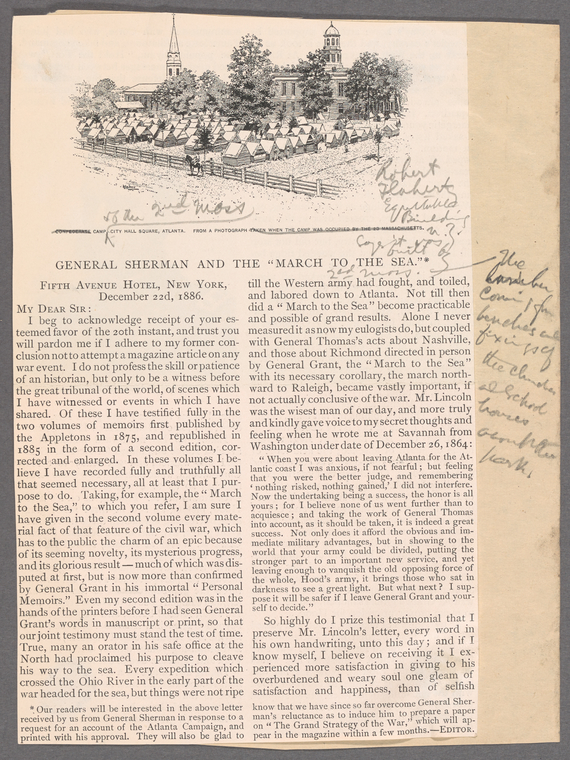 of the 2nd Mass
Robert
Equitable
Building
N.Y.
built by
2nd Mass.
CONFEDERATE CAMP, CITY HALL SQUARE, ATLANTA. FROM A PHOTOGRAPH TAKEN WHEN THE CAMP WAS OCCUPIED BY THE 2D MASSACHUSETTS.
GENERAL SHERMAN AND THE "MARCH TO THE SEA."*
FIFTH AVENUE HOTEL, NEW YORK,
December 22d, 1886.
MY DEAR SIR:
I beg to acknowledge receipt of your es-
teemed favor of the 20th instant, and trust you
will pardon me if I adhere to my former con-
clusion not to attempt a magazine article on any
war event. I do not profess the skill or patience
of an historian, but only to be a witness before
the great tribunal of the world, of scenes which
I have witnessed or events in which I have
shared. Of these I have testified fully in the
two volumes of memoirs first published by
the Appletons in 1875, and republished in
1885 in the form of a second edition, cor-
rected and enlarged. In these volumes I be-
lieve I have recorded fully and truthfully all
that seemed necessary, all at least that I pur-
pose to do. Taking, for example, the "March
to the Sea," to which you refer, I am sure I
have given in the second volume every mate-
rial fact of that feature of the civil war, which
has to the public the charm of an epic because
of its seeming novelty, its mysterious progress,
and its glorious result — much of which was dis-
puted at first, but is now more than confirmed
by General Grant in his immortal "Personal
Memoirs." Even my second edition was in the
hands of the printers before I had seen General
Grant's words in manuscript or print, so that
our joint testimony must stand the test of time.
True, many an orator in his safe office at the
North had proclaimed his purpose to cleave
his way to the sea. Every expedition which
crossed the Ohio River in the early part of the
war headed for the sea, but things were not ripe
* Our readers will be interested in the above letter
received by us from General Sherman in response to a
request for an account of the Atlanta Campaign, and
printed with his approval. They will also be glad to
till the Western army had fought, and toiled,
and labored down to Atlanta. Not till then
did a "March to the Sea" become practicable
and possible of grand results. Alone I never
measured it as now my eulogists do, but coupled
with General Thomas's acts about Nashville,
and those about Richmond directed in person
by General Grant, the "March to the Sea"
with its necessary corollary, the march north-
ward to Raleigh, became vastly important, if
not actually conclusive of the war. Mr. Lincoln
was the wisest man of our day, and more truly
and kindly gave voice to my secret thoughts and
feeling when he wrote me at Savannah from
Washington under date of December 26, 1864:
"When you were about leaving Atlanta for the At-
lantic coast I was anxious, if not fearful; but feeling
that you were the better judge, and remembering
'nothing risked, nothing gained,' I did not interfere.
Now the undertaking being a success, the honor is all
yours; for I believe none of us went further than to
acquiesce; and taking the work of General Thomas
into account, as it should be taken, it is indeed a great
success. Not only does it afford the obvious and im-
mediate military advantages, but in showing to the
world that your army could be divided, putting the
stronger part to an important new service, and yet
leaving enough to vanquish the old opposing force of
the whole, Hood's army, it brings those who sat in
darkness to see a great light. But what next? I sup-
pose it will be safer if I leave General Grant and your-
self to decide."
So highly do I prize this testimonial that I
preserve Mr. Lincoln's letter, every word in
his own handwriting, unto this day; and if I
know myself, I believe on receiving it I ex-
perienced more satisfaction in giving to his
overburdened and weary soul one gleam of
satisfaction and happiness, than of selfish
know that we have since so far overcome General Sher-
man's reluctance as to induce him to prepare a paper
on "The Grand Strategy of the War," which will ap-
pear in the magazine within a few months.—EDITOR.
The
lumber
Coming from
benches and
fixings of
the churches
and School
houses
about the
park.